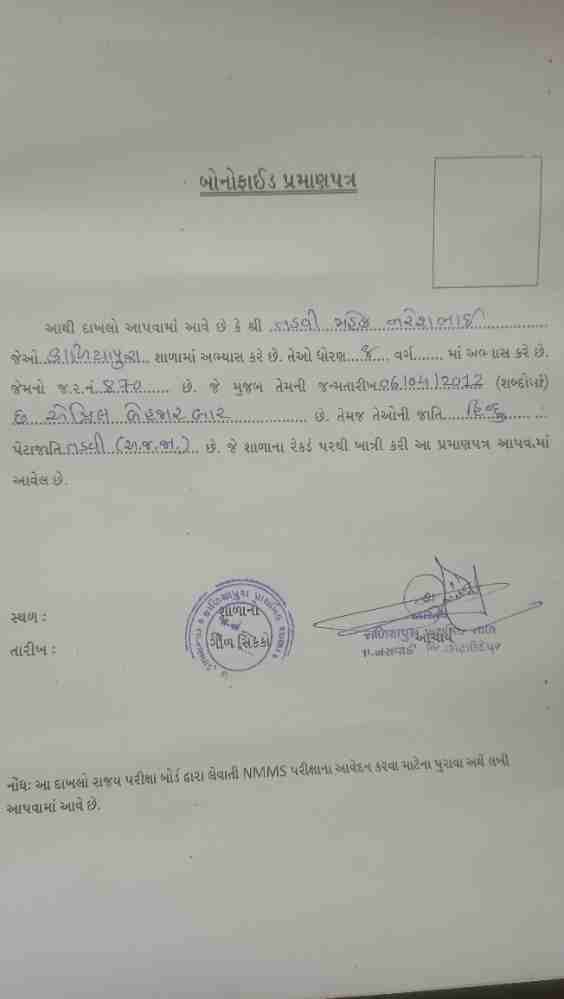 બોનોફાઈડ પ્રમાણપત્ર
આથી દાખલો આપવામાં આવે છે કે શ્રી તડવી મહેક નરેશભાઈ
જેઓ કાળિયાપુરા શાળામાં અભ્યાસ કરે છે. તેઓ ધોરણ....૮.... વર્ગ....... માં અભ્યાસ કરે છે.
જેમનો જ.ર.નં.૪૭૦...... છે. જે મુજબ તેમની જન્મતારીખ.06/04/2012 (શબ્દોમાં)
છ એપ્રિલ બેહજાર બાર છે. તેમજ તેઓની જાતિ હિન્દુ
પેટાજાતિ તડવી (અ.જ.જા.) છે. જે શાળાના રેકર્ડ પરથી ખાત્રી કરી આ પ્રમાણપત્ર આપવામાં
આવેલ છે.
સ્થળ :
તારીખ :
શાળાનો
ગોળ સિક્કો
આચાર્ય
નોંધ: આ દાખલો રાજય પરીક્ષા બોર્ડ દ્વારા લેવાતી NMMS પરીક્ષાના આવેદન કરવા માટેના પુરાવા અર્થે લખી
આપવામાં આવે છે.